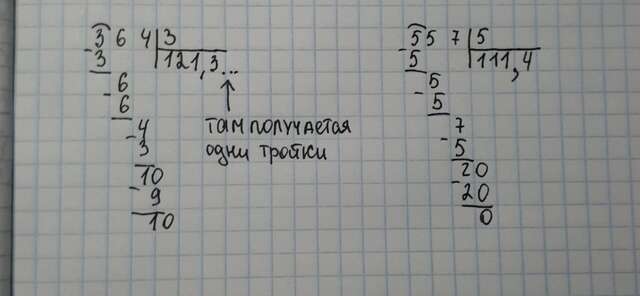 3 6 4 | 3
- 3 121,3...
6
- 6
4
- 3
10
- 9
10
там получается
одни тройки
5 5 7 | 5
- 5 111,4
5
- 5
7
- 5
20
- 20
0